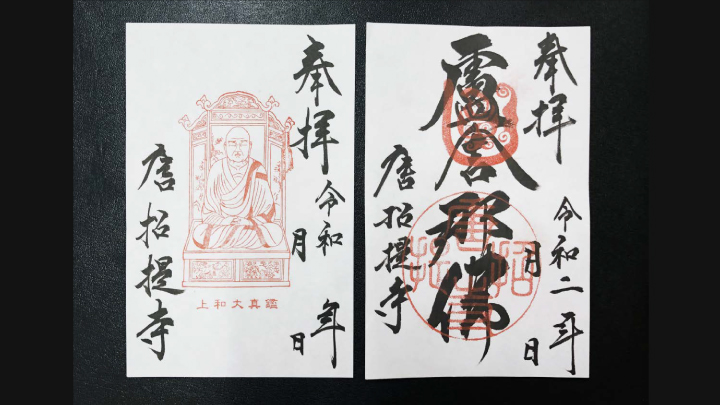 奉拝
令和 年
月 日
上和大真鑑
唐招提寺
奉拝
令和二年
月 日
盧舎那佛
唐招提寺
唐招提寺